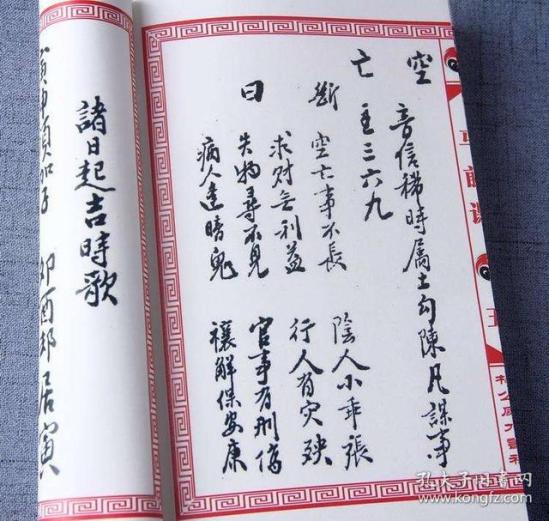 前課
五
空　音信稀時屬土勾陳凡謀事
亡　主三六九
斷　空亡事不長　陰人小乖張
求财无利益　行人有灾殃
曰　失物尋不見　官事有刑傷
病人逢暗鬼　禳解保安康
諸日起吉時歌
申須加子　卯酉却居寅
孔夫子旧书网
www.kongfz.com